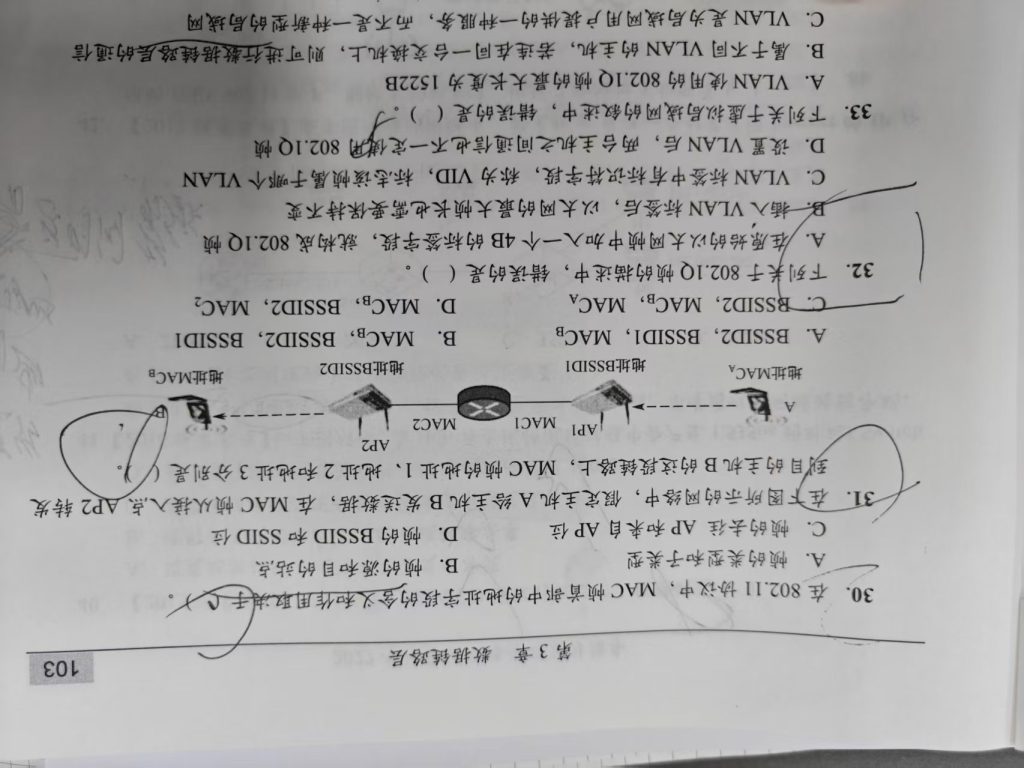 第 3 章 数据链路层
103
30. 在 802.11 协议中，MAC 帧首部中的地址字段的含义和作用取决于（ C ）。
A. 帧的类型和子类型 B. 帧的源和目的站点
C. 帧的去往 AP 和来自 AP 位 D. 帧的 BSSID 和 SSID 位
31. 在下图所示的网络中，假定主机 A 给主机 B 发送数据，在 MAC 帧从接入点 AP2 转发
到目的主机 B 的这段链路上，MAC 帧的地址 1、地址 2 和地址 3 分别是（ ）。
A AP1 MAC1 MAC2 AP2 B
地址MACA 地址BSSID1 地址BSSID2 地址MACB
A. BSSID2，BSSID1，MACB B. MACB，BSSID2，BSSID1
C. BSSID2，MACB，MACA D. MACB，BSSID2，MAC2
32. 下列关于 802.1Q 帧的描述中，错误的是（ ）。
A. 在原始的以太网帧中加入一个 4B 的标签字段，就构成 802.1Q 帧
B. 插入 VLAN 标签后，以太网的最大帧长也需要保持不变
C. VLAN 标签中有标识符字段，称为 VID，标志该帧属于哪个 VLAN
D. 设置 VLAN 后，两台主机之间通信也不一定使用 802.1Q 帧
33. 下列关于虚拟局域网的叙述中，错误的是（ ）。
A. VLAN 使用的 802.1Q 帧的最大长度为 1522B
B. 属于不同 VLAN 的主机，若连在同一台交换机上，则可进行数据链路层的通信
C. VLAN 是为局域网用户提供的一种服务，而不是一种新型的局域网